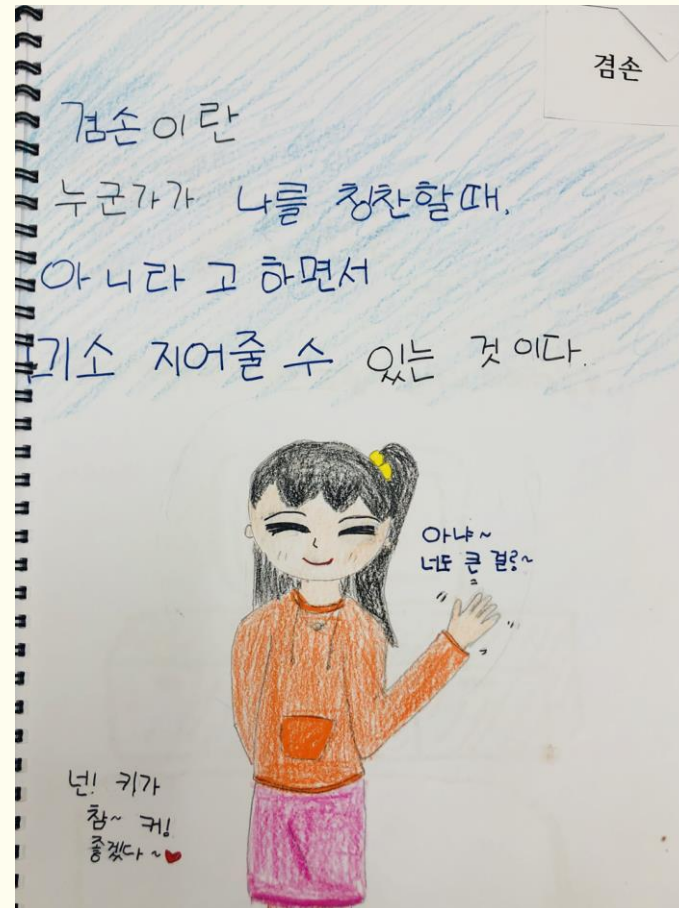 겸손
겸손이란
누군가가 나를 칭찬할때,
아니라고 하면서
미소 지어줄 수 있는 것이다.
아냐~
너도 큰 걸?~
넌! 키가
참~ 커!
좋겠다~♥